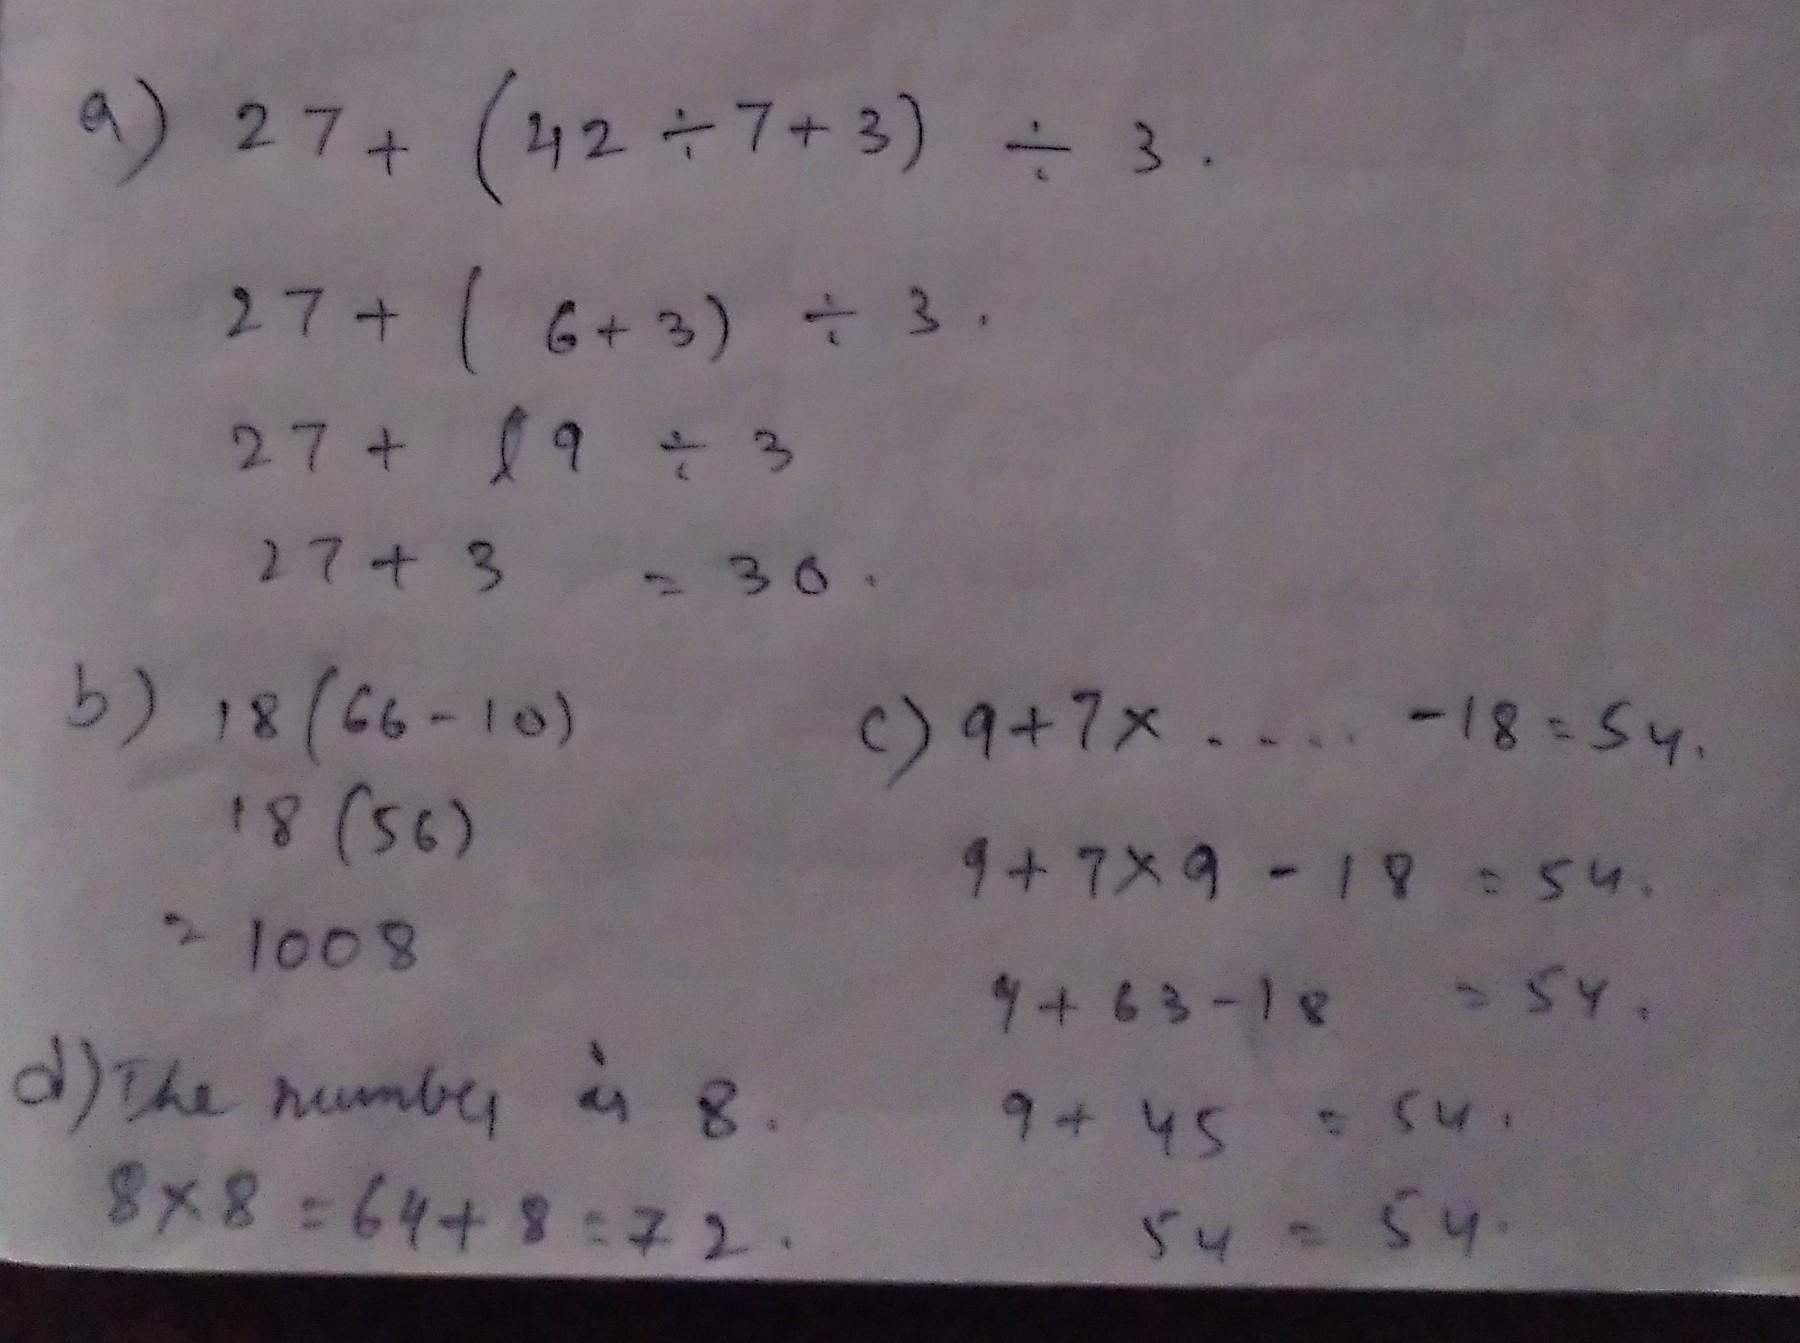 a) 27+ (42÷7+3) ÷ 3.
27+ ( 6+3) ÷ 3.
27+ 9 ÷ 3
27+ 3 = 30.
b) 18(66-10)
18 (56)
= 1008
c) 9+7× ..... -18=54.
9+7×9 -18 = 54.
9+63-18 = 54.
9+ 45 = 54.
54 = 54.
d) The number is 8.
8×8 =64+8=72.